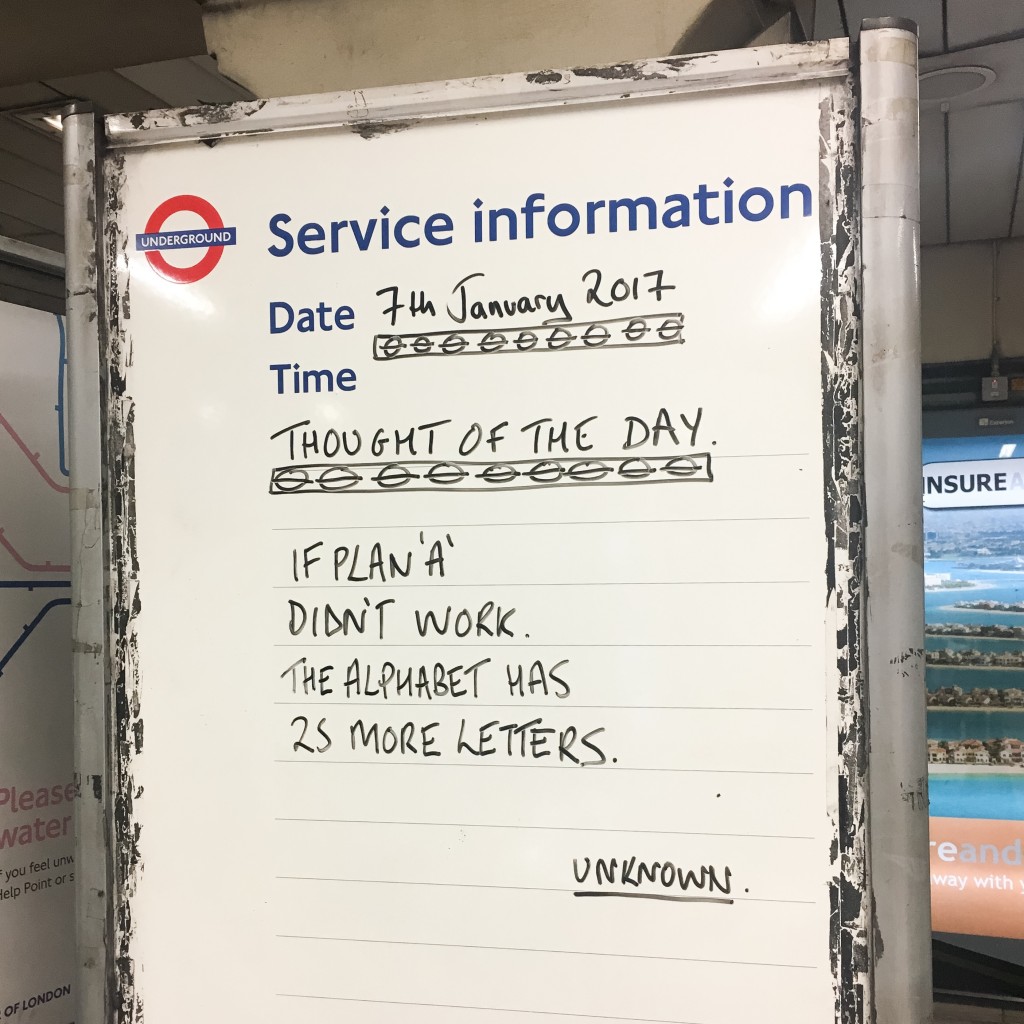 UNDERGROUND
Service information
Date 7th January 2017
Time
THOUGHT OF THE DAY.
IF PLAN 'A'
DIDN'T WORK.
THE ALPHABET HAS
25 MORE LETTERS.
UNKNOWN.
Please
water
you feel
Help Point or
OF LONDON
INSURE
way with